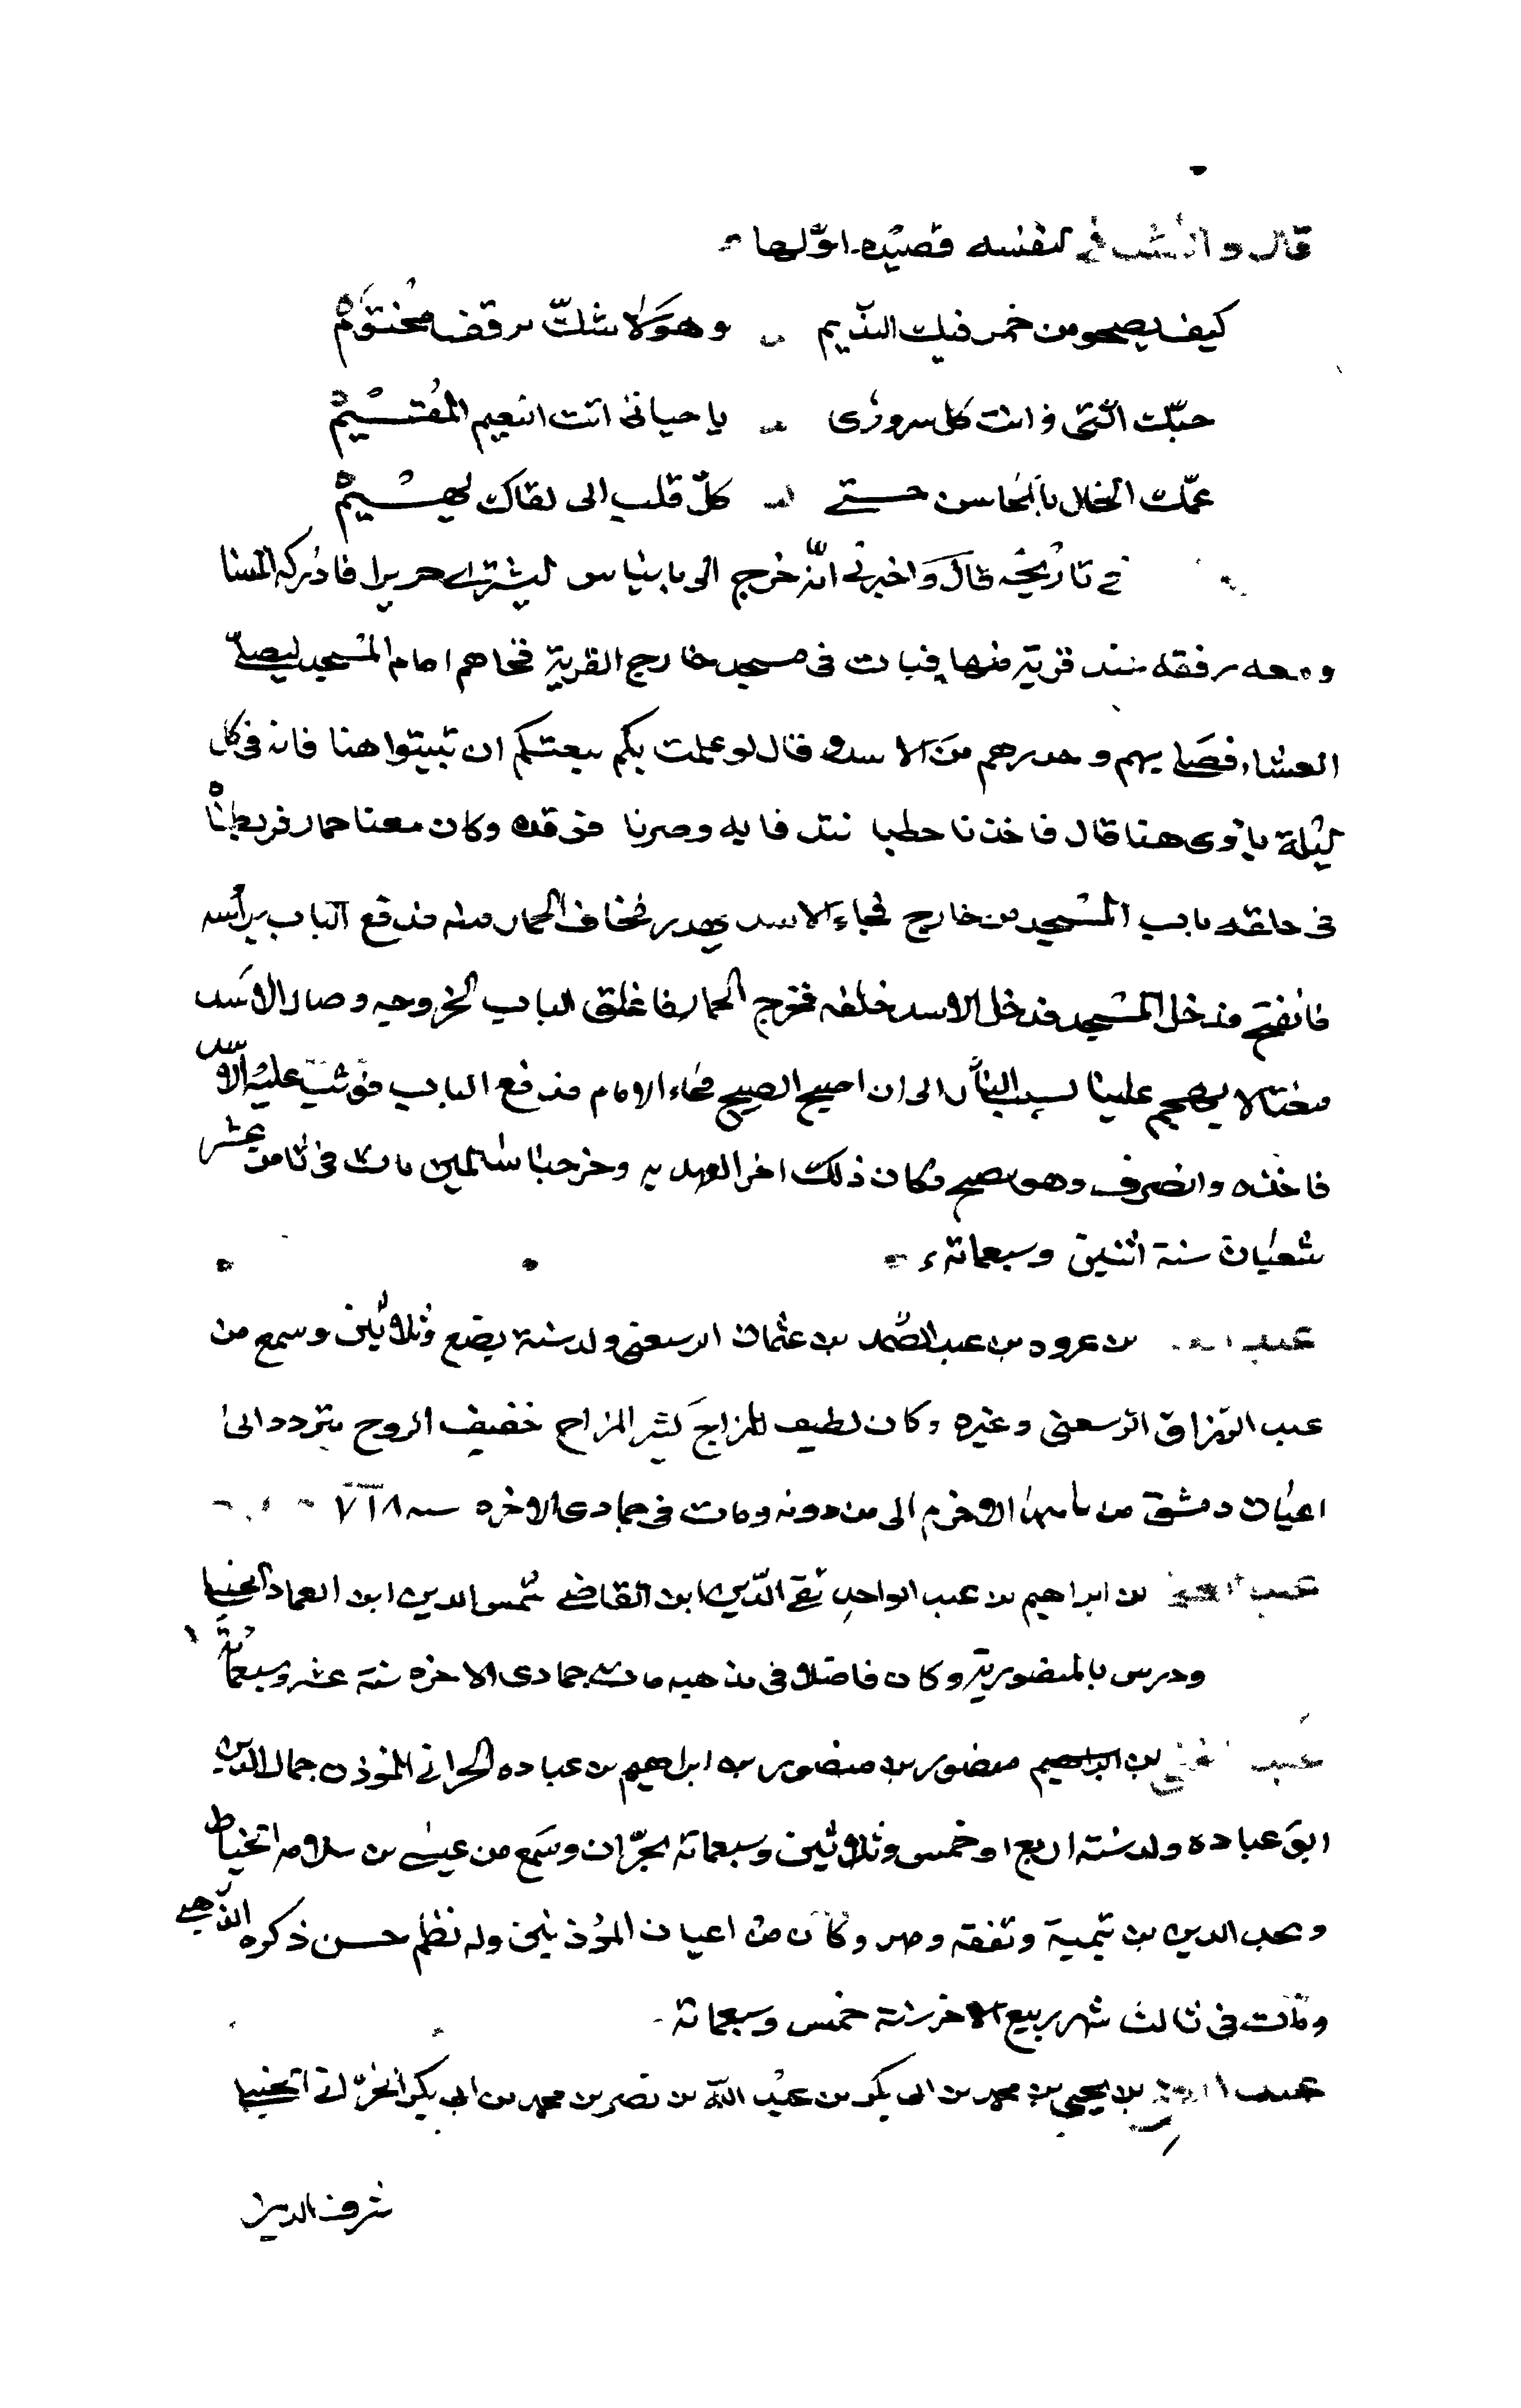 قال وانشدني لنفسه قصيده اولها
كيف يصحو من خمر فيك النديم وهو لا شك رقف مختوم
حبك انتى وانت كل سرورى يا حياتى انت النعيم المقيم
عمك الخال بالمحاسن حتى كل قلب الى لقاك يهيم
فى تاريخه قال واخبرنى انه خرج الى بانياس ليشترى حريرا فادركه المسا
ومعه رفقه عند قرية منها فبات فى مسجد خارج القرية فجاهم امام المسجد ليصلى
العشاء فصلى بهم وحذرهم من الاسد وقال لو علمت بكم منعتكم ان تبيتوا هنا فانه فى كل
ليلة يأوى هنا قال فاخذنا حطبا نتدفا به وصرنا فى وقده وكان معنا حمار فربطنا
فى حلقه باب المسجد من خارج فجاء الاسد يهدر فخاف الحمار منه فدفع الباب برأسه
فانفتح فدخل المسجد فدخل الاسد خلفه فخرج الحمار فاغلق الباب لخروجه وصار الاسد
معنا لا يهجم علينا لسبب النار الى ان اصبح الصبح فجاء الامام فدفع الباب فوثب عليه الاسد
فاخذه وانصرف وهو يصيح فكان ذلك اخر العهد به وخرجنا سالمين مات فى ثامن عشر
شعبان سنة اثنين وسبعمائة
عبد بن عبد الصمد بن عثمان الرسعنى ولد سنة بضع وثلاثين وسمع من
عبد الرزاق الرسعنى وغيره وكان لطيف المزاج كثير المزاح خفيف الروح يتردد الى
اعيان دمشق من نائبها الافرم الى من دونه ومات فى جمادى الاخره سنه
عبد بن ابراهيم بن عبد الواحد تقى الدين ابن القاضى شمس الدين ابن العماد الحنبلى
ودرس بالمنصورية وكان فاضلا فى مذهبه مات جمادى الاخره سنة عشر وسبعمائة
عبد بن ابراهيم منصور بن منصور بن ابراهيم بن عباده الحرانى المؤذن جمال الدين
ابو عباده ولد سنة اربع او خمس وثلاثين وسبعمائة بحران وسمع من عيسى بن سلامه الخياط
ومجد الدين بن تيمية وتفقه ومهر وكان من اعيان المؤذنين وله نظم حسن ذكره الذهبى
ومات فى ثالث شهر ربيع الاخر سنة خمس وسبعمائة
عبد بن يحيى بن محمد بن ابى بكر بن عبد الله بن نصر بن محمد بن ابى بكر الحرانى الحنبلى
شرف الدين